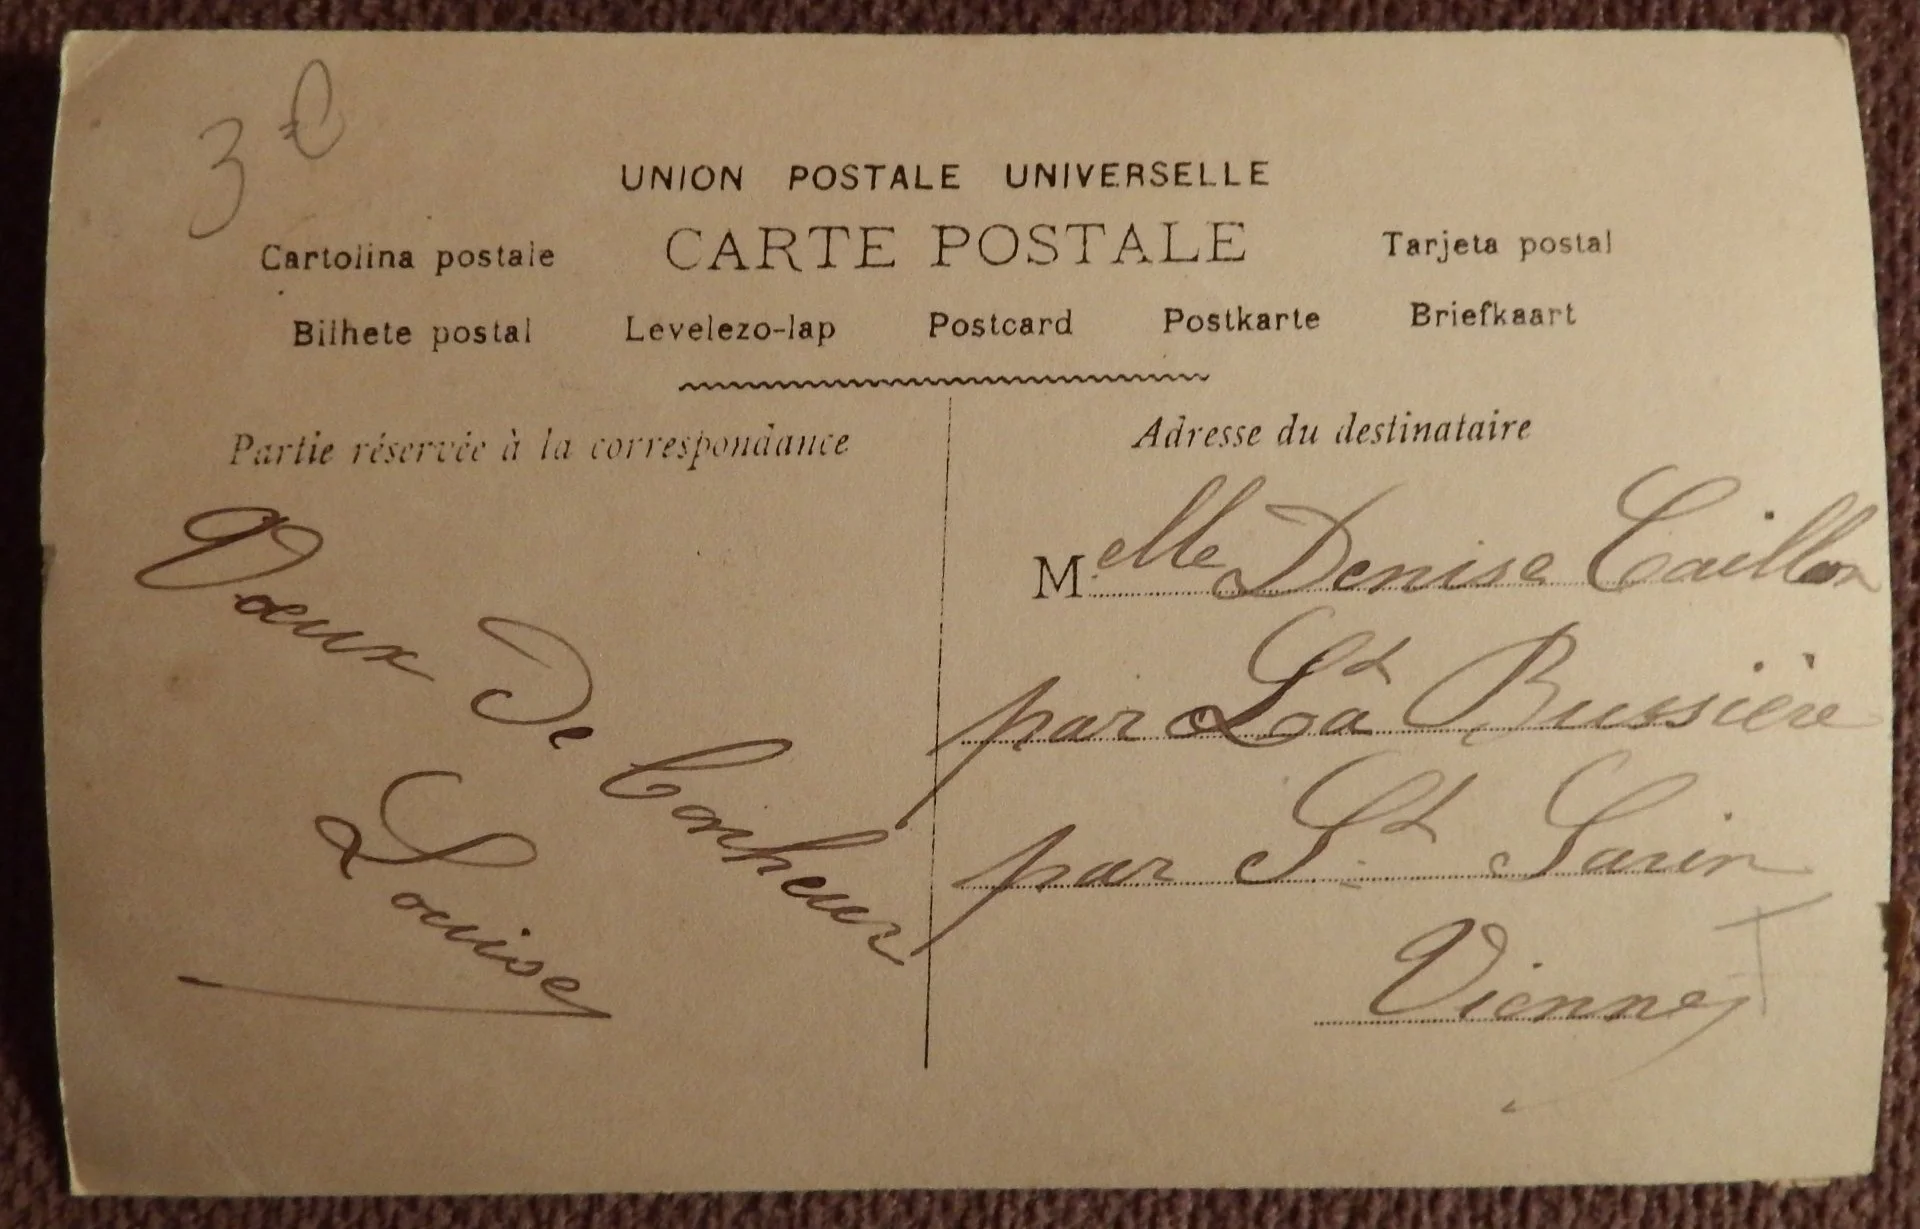 3 €
UNION POSTALE UNIVERSELLE
Cartolina postale CARTE POSTALE Tarjeta postal
Bilhete postal Levelezo-lap Postcard Postkarte Briefkaart
Partie réservée à la correspondance
Vœux De bonheur
Louise
Adresse du destinataire
Melle Denise Caillon
par La Bussière
par St Savin
Vienne